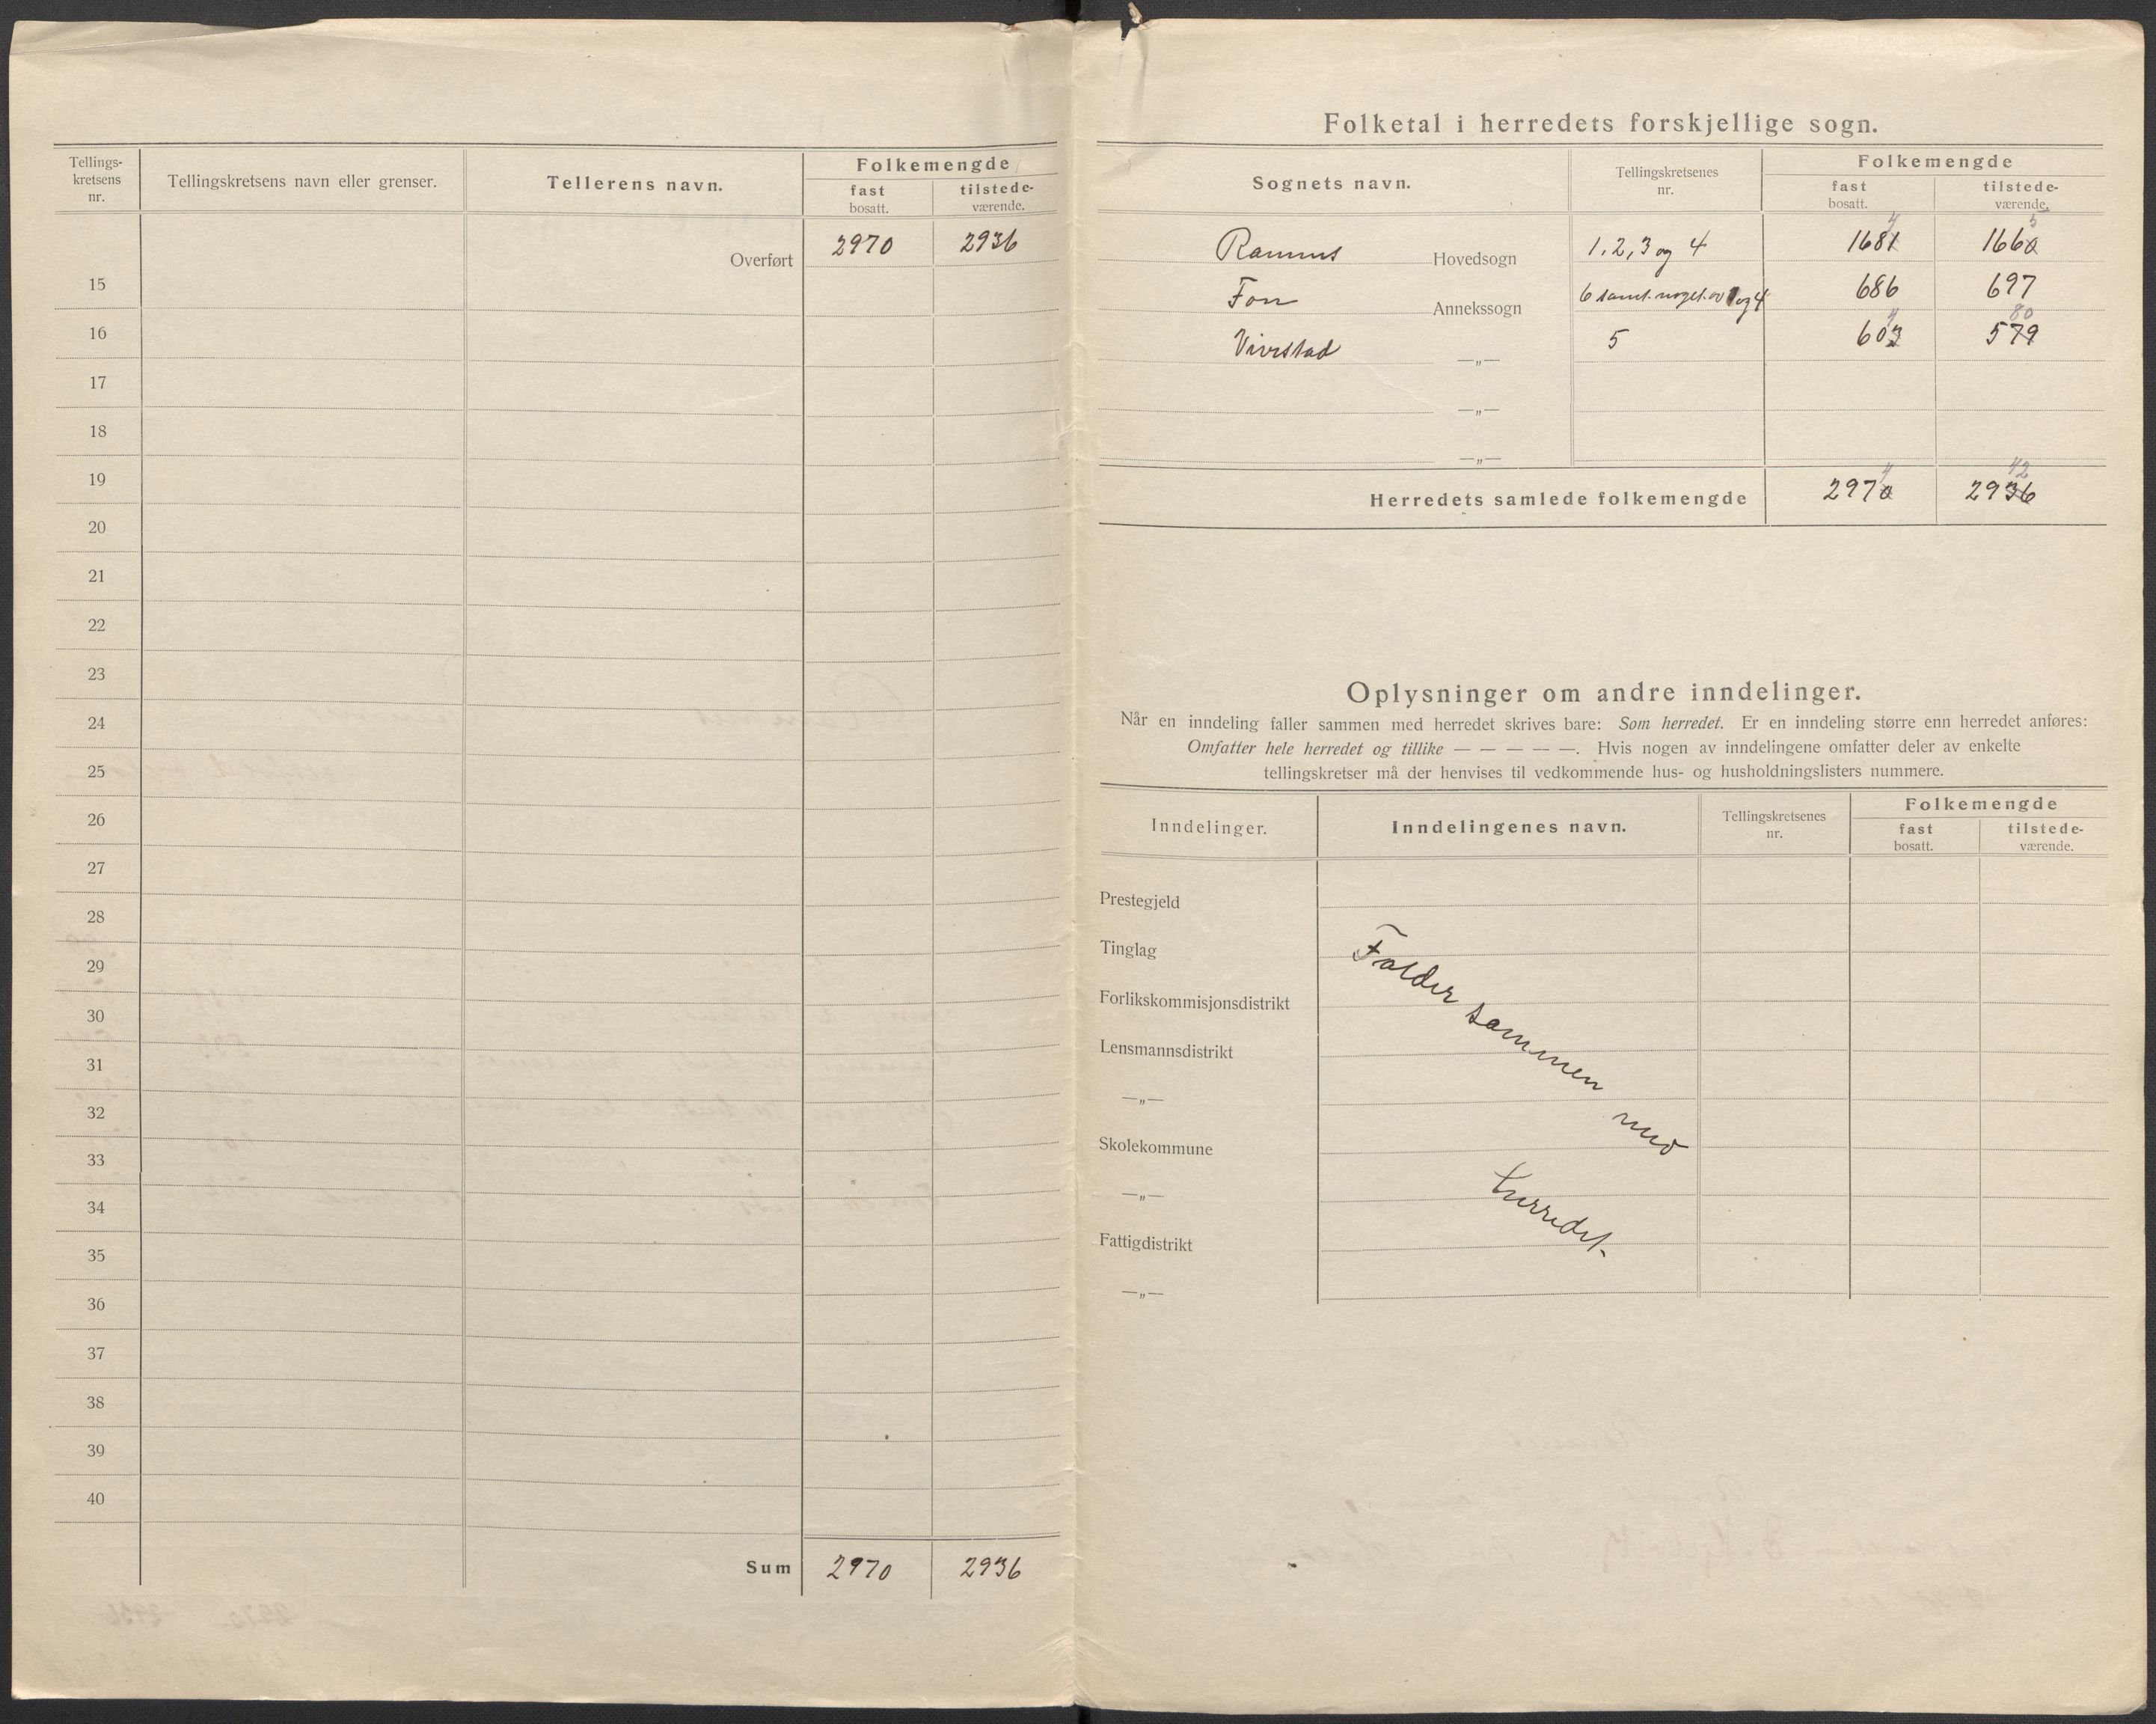 Tellings-
kretsens
nr.
Tellingskretsens navn eller grenser.
Tellerens navn.
Folkemengde
fast
bosatt.
tilstede-
værende.
Overført 2970 2936
15
16
17
18
19
20
21
22
23
24
25
26
27
28
29
30
31
32
33
34
35
36
37
38
39
40
Sum 2970 2936
Folketal i herredets forskjellige sogn.
Sognets navn.
Tellingskretsenes
nr.
Folkemengde
fast
bosatt.
tilstede-
værende.
4 5
Ramnes Hovedsogn 1, 2, 3 og 4 1681 1660
Fon Annekssogn 6 samt noget av 1 og 4 686 697
4 80
Vivestad —„— 5 603 579
—„—
—„—
4 42
Herredets samlede folkemengde 2970 2936
Oplysninger om andre inndelinger.
Når en inndeling faller sammen med herredet skrives bare: Som herredet. Er en inndeling større enn herredet anføres:
Omfatter hele herredet og tillike — — — — —. Hvis nogen av inndelingene omfatter deler av enkelte
tellingskretser må der henvises til vedkommende hus- og husholdningslisters nummere.
Inndelinger.
Inndelingenes navn.
Tellingskretsenes
nr.
Folkemengde
fast
bosatt.
tilstede-
værende.
Prestegjeld
Tinglag
Forlikskommisjonsdistrikt
Lensmannsdistrikt
—„—
Skolekommune
—„—
Fattigdistrikt
—„—
Falder sammen med
herredet.